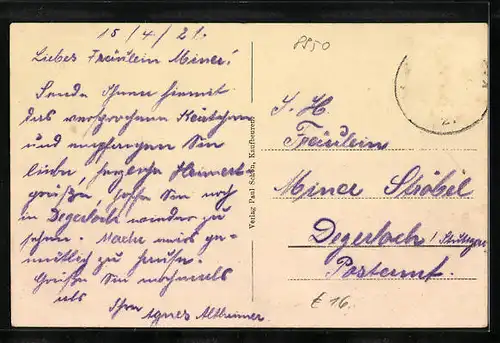 15/4/21.
Liebes Fräulein Miner!
Sende Ihnen hiermit
das versprochene Kärtchen
und empfangen Sie
liebe, herzliche Heimat-
grüße, hoffe Sie noch
in Degerloch wieder zu
sehen. Mache mirs ge-
mütlich zu Hause.
Grüßen Sie nochmals
als Ihre
Agnes Altheimer
Verlag Paul Kaufbeuren
8950
S. H.
Fräulein
Miner Ströbel
Degerloch / Stuttgart
Postamt.
£ 16.